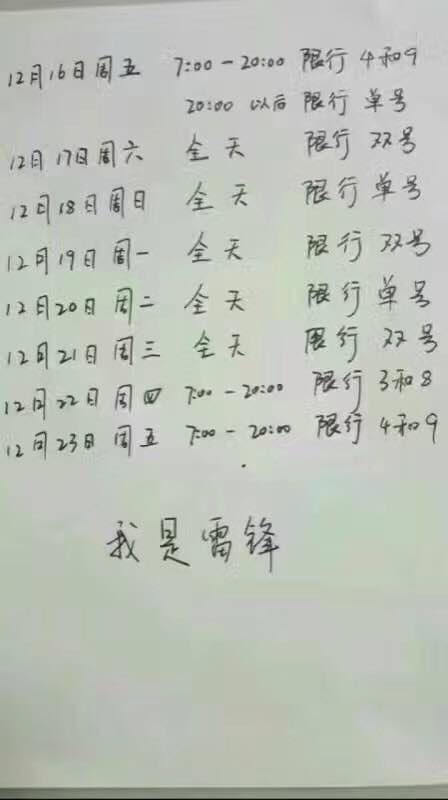 12月16日周五 7:00-20:00 限行 4和9
20:00 以后 限行 单号
12月17日周六 全天 限行 双号
12月18日周日 全天 限行 单号
12月19日周一 全天 限行 双号
12月20日周二 全天 限行 单号
12月21日周三 全天 限行 双号
12月22日周四 7:00-20:00 限行 3和8
12月23日周五 7:00-20:00 限行 4和9
我是雷锋